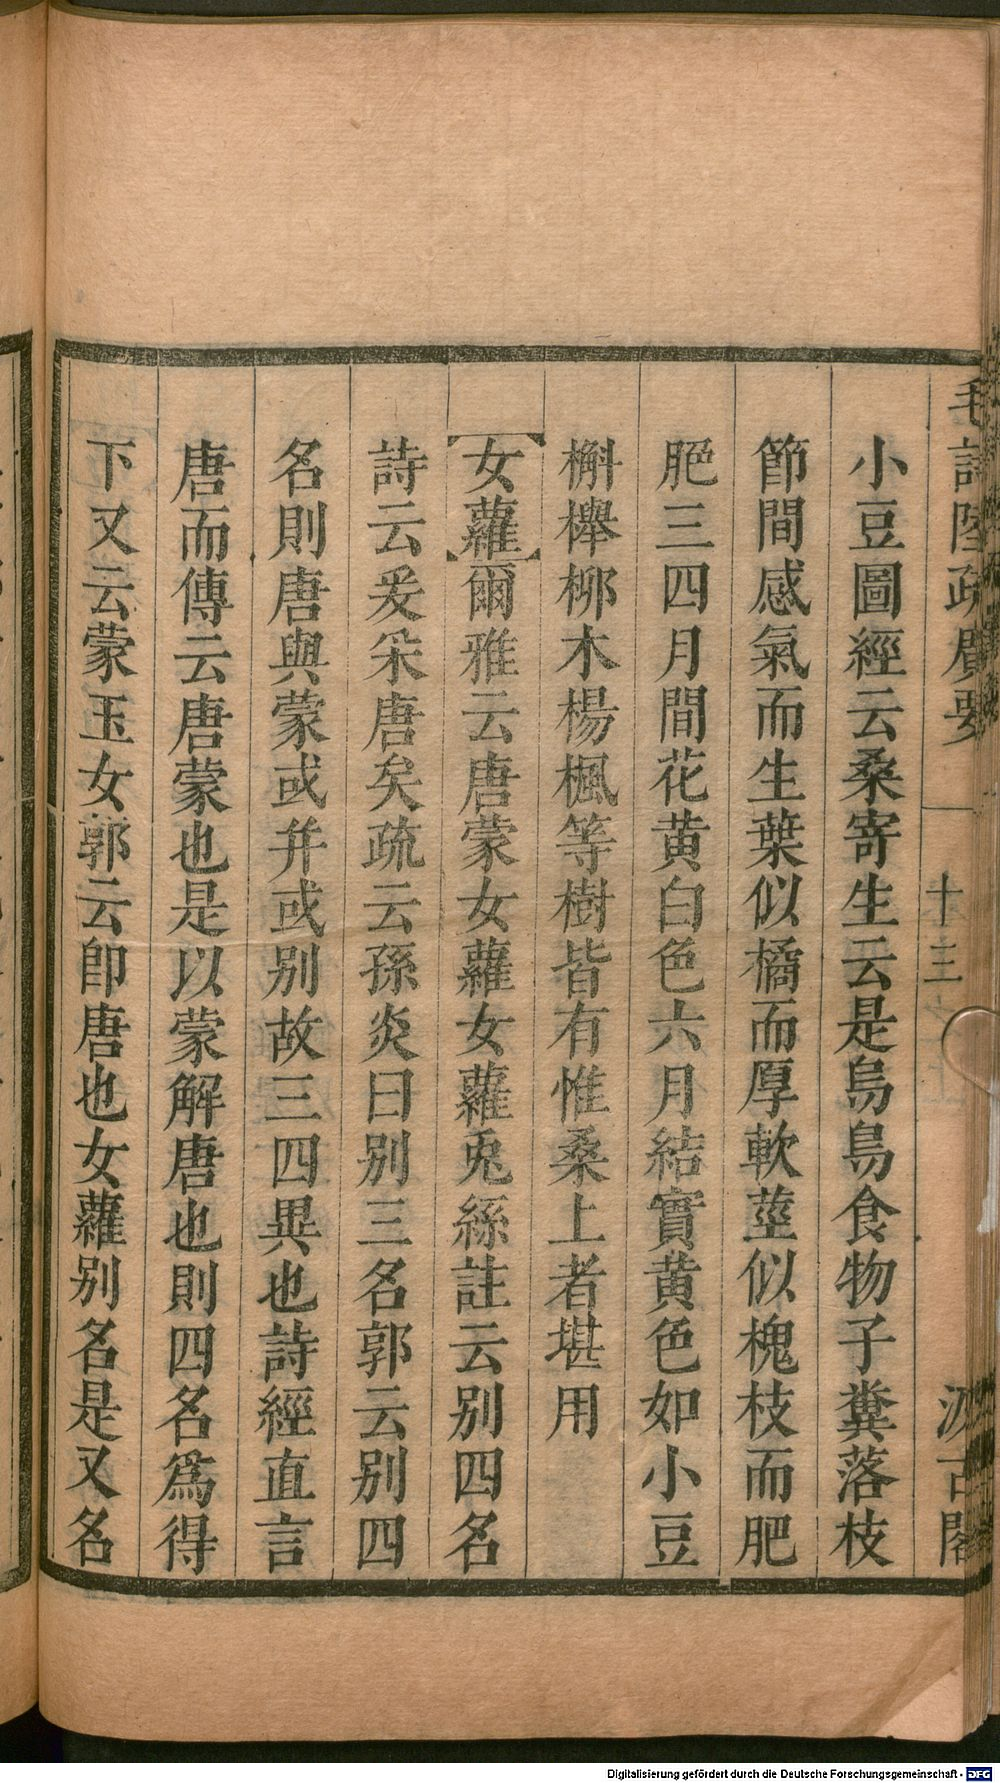 毛詩陸疏廣要
十三
汲古閣
小豆圖經云桑寄生云是烏鳥食物子糞落枝
節間感氣而生葉似橘而厚軟莖似槐枝而肥
脆三四月間花黄白色六月結實黄色如小豆
槲櫸柳木楊楓等樹皆有惟桑上者堪用
【女蘿】爾雅云唐蒙女蘿女蘿兎絲註云别四名
詩云爰采唐矣疏云孫炎曰别三名郭云别四
名則唐與蒙或并或别故三四異也詩經直言
唐而傳云唐蒙也是以蒙解唐也則四名爲得
下又云蒙玉女郭云即唐也女蘿别名是又名
Digitalisierung gefördert durch die Deutsche Forschungsgemeinschaft - DFG